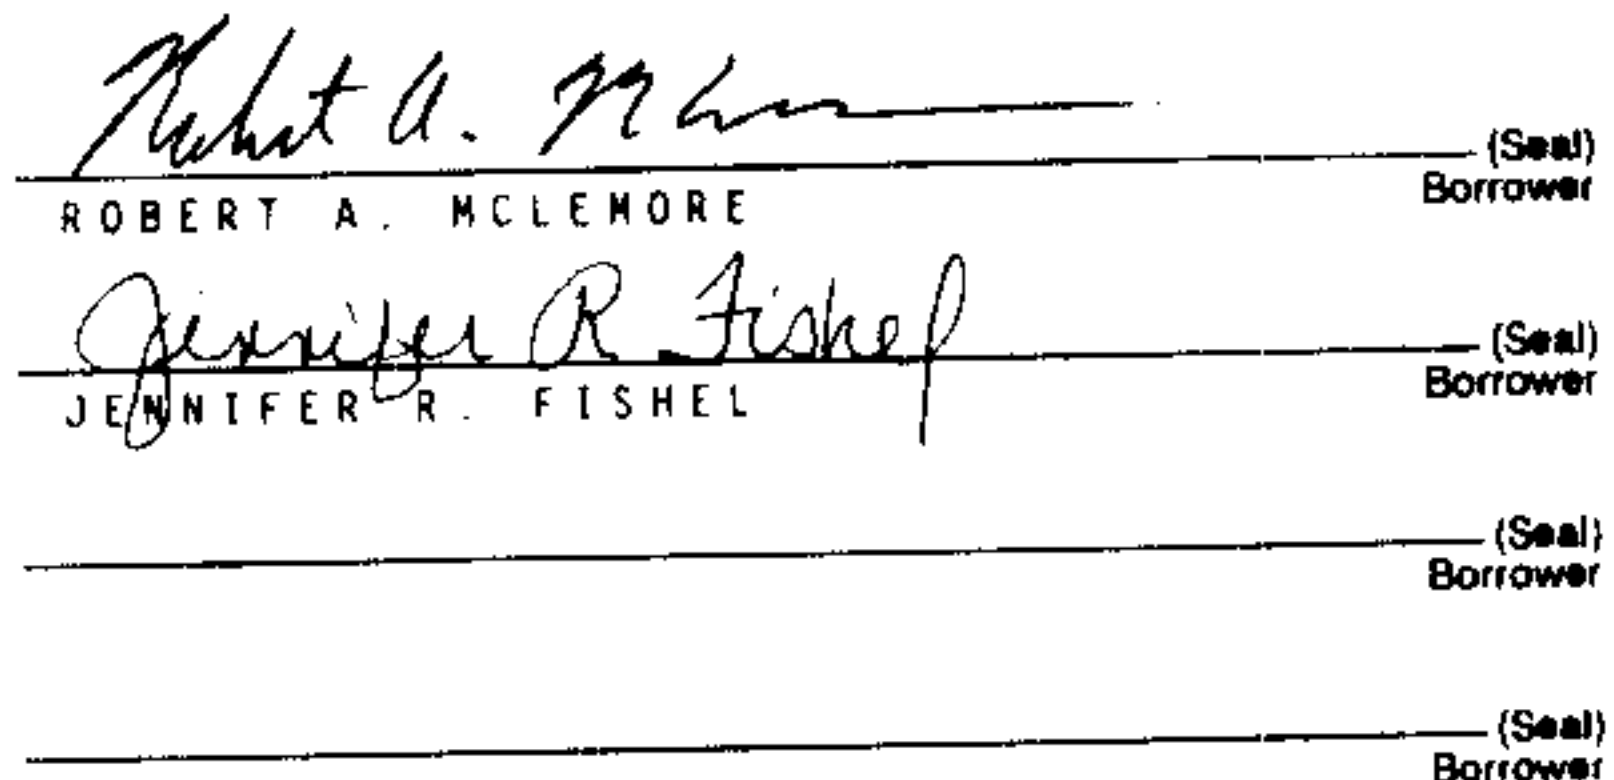 Robert A. McLemore (Seal)
Borrower
ROBERT A. MCLEMORE
Jennifer R Fishel (Seal)
Borrower
JENNIFER R. FISHEL
(Seal)
Borrower
(Seal)
Borrower